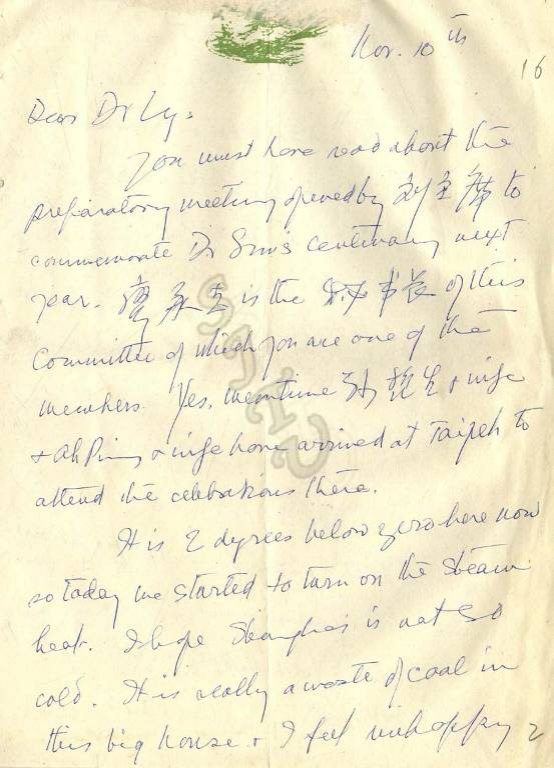 Nov. 10th
16
Dear Dr Ly,
You must have read about the
preparatory meeting opened by 刘主席 to
commemorate Dr Sun's centenary next
year. 廖承志 is the 秘书长 of this
Committee of which you are one of the
members. Yes, meantime 孙 & wife
& Ah Ping & wife have arrived at Taipeh to
attend the celebrations there.
It is 2 degrees below zero here now
so today we started to turn on the steam
heat. I hope Shanghai is not so
cold. It is really a waste of coal in
this big house & I feel unhappy
2